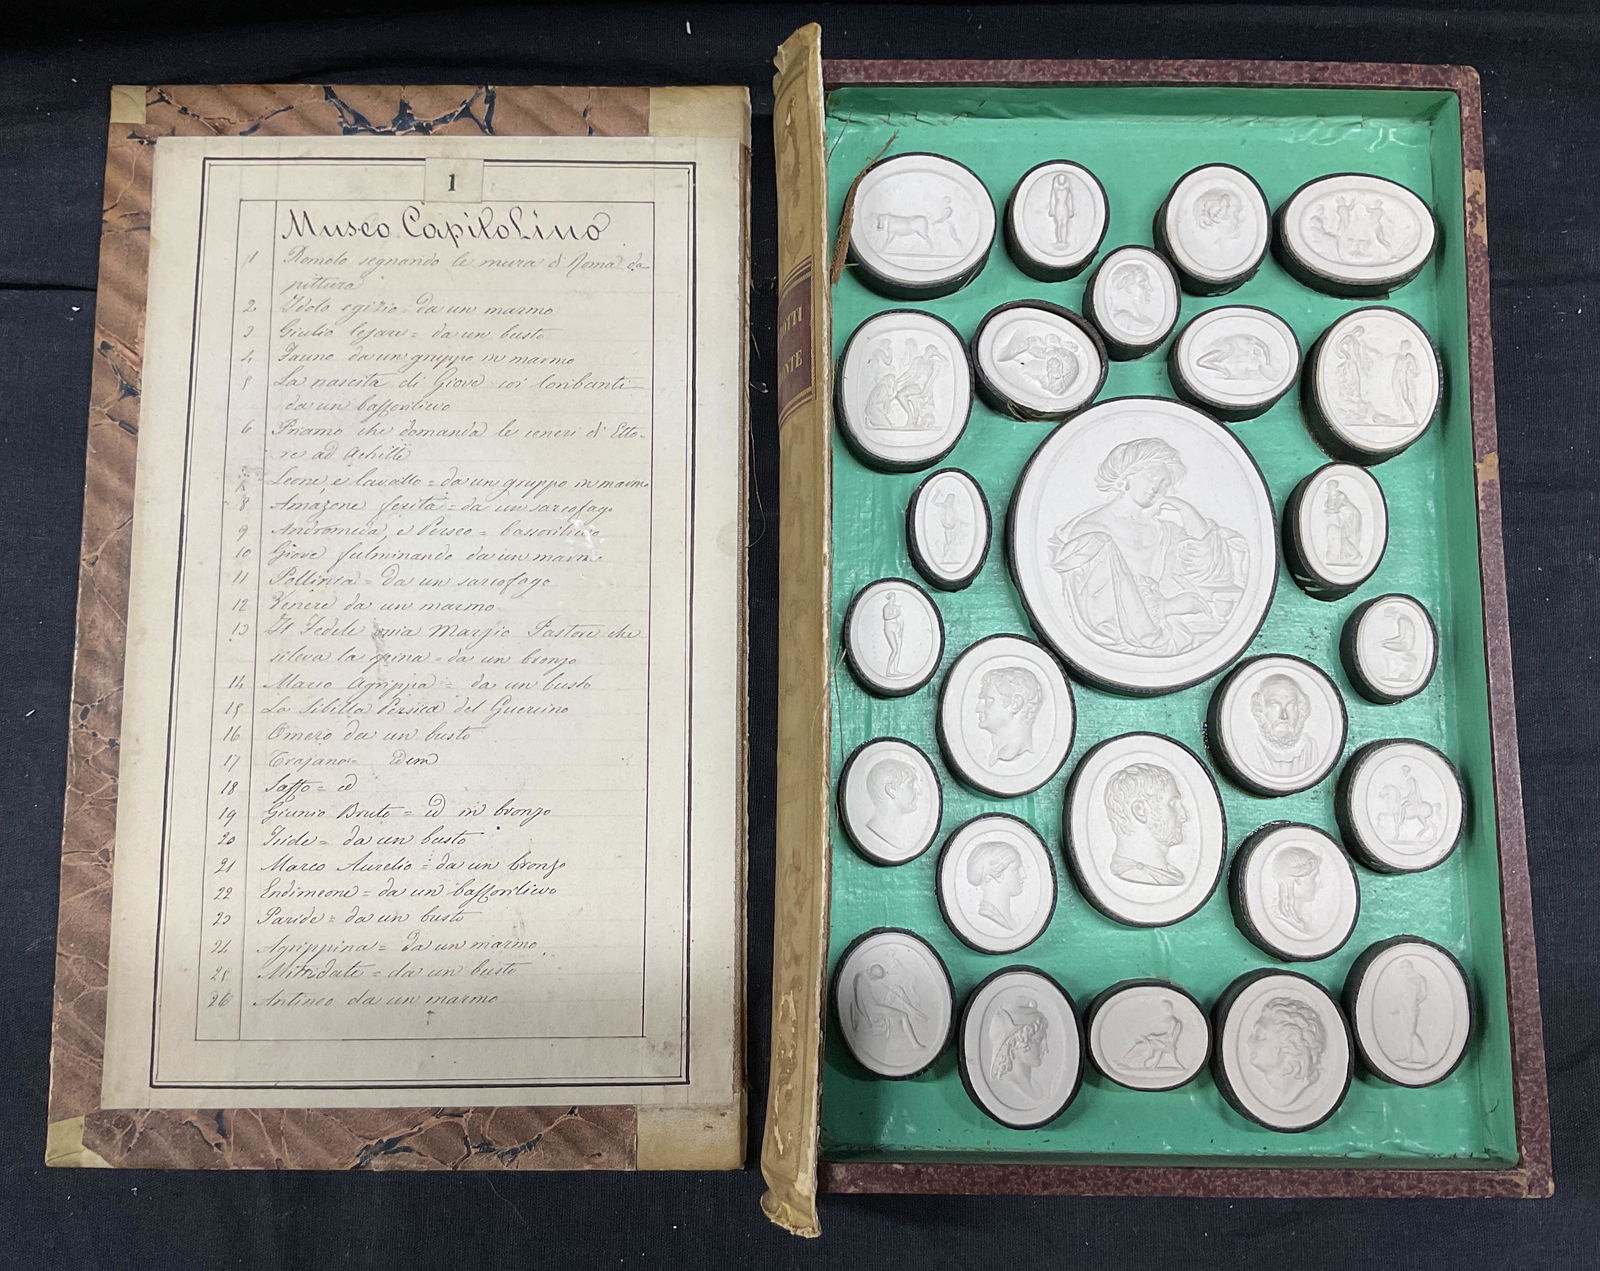 1
Museo Capitolino
1 Romolo segnando le mura di Roma da
pittura
2 Idolo egizio = da un marmo
3 Giulio Cesare = da un busto
4 Fauno da un gruppo in marmo
5 La nascita di Giove coi Coribanti
da un bassorilievo
6 Priamo che domanda le ceneri di Etto-
re ad Achille
7 Leone e Cavallo = da un gruppo in marmo
8 Amazone ferita = da un sarcofago
9 Andromeda, e Perseo = bassorilievo
10 Giove fulminando da un marmo
11 Pollinia = da un sarcofago
12 Venere da un marmo
13 Il Fedele ossia Marzio Pastore che
si leva la spina = da un bronzo
14 Marco Agrippa = da un busto
15 La Sibilla Persica del Guercino
16 Omero da un busto
17 Trajano = Idem
18 Saffo = id
19 Giunio Bruto = id in bronzo
20 Iside = da un busto
21 Marco Aurelio = da un bronzo
22 Endimeone = da un bassorilievo
23 Paride = da un busto
24 Agrippina = da un marmo
25 Mitridate = da un busto
26 Antinoo da un marmo
OTTI
NTE